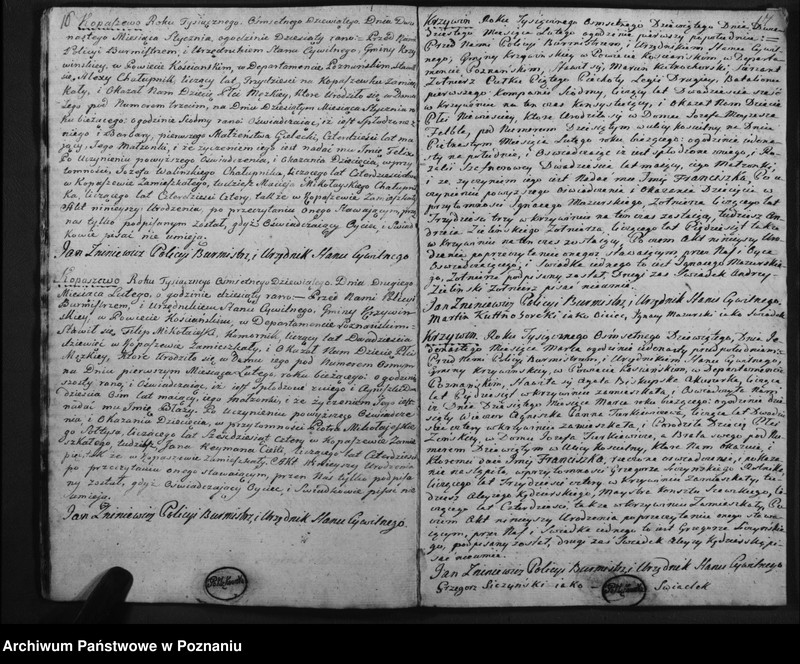 16 Kopaszewo Roku Tysiącznego Ośmsetnego Dziewiątego. Dnia Dwu
nastego Miesiąca Stycznia, ogodzinie Dziesiąty rano: Przed Nami
Policyi Burmistrzem, i Urzędnikiem Stanu Cywilnego, Gminy Krzy
winskiey, w Powiecie Kościańskim, w Departamencie Poznańskim, Stawił
się, Chałupnik, liczący lat, Trzydzieści na Kopaszewku Zamiesz
kały, i Okazał Nam Dziecię Płci Męzkiey, które Urodziło się w Domu
Jego pod Numerem trzecim, na Dniu Dziesiątym Miesiąca Stycznia ro
ku bieżącego: ogodzinie siodmy rano Oświadczaiąc, iż iest Spłodzone z
niego i Barbary, Małżeństwa Czterdzieści lat ma
iący Jego Małżonki, i że życzeniem iego iest nadać mu Imię Felix
Po Uczynieniu powyższego Oświadczenia, i Okazania Dziecięcia, w przy
tomności, Jozefa Walinskiego Chałupnika, liczącego lat Czterdzieści
w Kopaszewie Zamieszkałego, tudzież Macieja Mikołayskiego Chałupni
ka, liczącego lat Czterdzieści Cztery, także w Kopaszewie Zamieszkały
Akt ninieyszy Urodzenia, po przeczytaniu onego Stawaiącym, przez
nas tylko podpisanym został, gdyż Oświadczaiący Oyciec, i Świad
kowie pisać nie umieją.
Jan Zniniewicz Policyi Burmistrz, i Urzędnik Stanu Cywilnego
Kopaszewo Roku Tysiącznego Ośmsetnego Dziewiątego. Dnia Drugiego
Miesiąca Lutego, o godzinie dziewiąty rano. Przed Nami Policyi
Burmistrzem, i Urzędnikiem Stanu Cywilnego, Gminy Krzywin
skiey, w Powiecie Kościańskim, w Departamencie Poznańskim:
Stawił się, Filip Komornik, liczący lat Dwadzieścia
dziewięć w Kopaszewie Zamieszkały, i Okazał Nam Dziecię Płci
Męzkiey, które Urodziło się w Domu iego pod Numerem Osmym
na Dniu pierwszym Miesiąca Lutego, roku bieżącego: o godzinie
szosty rano, i Oświadczaiąc, iż iest Spłodzone z niego i
dzieścia Ośm lat maiący, iego małżonki, i że życzeniem Jego iest
nadać mu Imię Błażey. Po Uczynieniu powyższego Oświadcze
nia i Okazania Dziecięcia, w przytomności Piotra
go Sołtysa, liczącego lat Sześdziesiąt Cztery w Kopaszewie Zamie
szkałego, tudzież Jana Cieśli, liczącego lat Czterdzieści
pięć, także w Kopaszewie Zamieszkały. Akt Ninieyszy Urodzenia
po przeczytaniu onego Stawaiącym, przez Nas tylko podpisa
ny został, gdyż Oświadczaiący Oyciec, i Świadkowie pisać nie
umieją.
Jan Zniniewicz Policyi Burmistrz, i Urzędnik Stanu Cywilnego.
17
Krzywin. Roku Tysiącznego Ośmsetnego Dziewiątego Dnia Dwu
dziestego Miesiąca Lutego ogodzinie pierwszy popołudniu:
Przed Nami Policyi Burmistrzem, i Urzędnikiem Stanu Cywil
nego, Gminy Krzywińskiey w Powiecie Kościańskim, w Departa
mencie Poznańskim, Stawił się, Marcin
Żołnierz Pułku Piątego Piechoty Legii Drugiey, Batalionu
pierwszego Kompanii Siodmy, liczący lat Dwadzieścia sześć
w Krzywiniu na ten czas Konsystuiący, i Okazał Nam Dziecię
Płci Niewieściey, które Urodziło się w Domu Jozefa
pod Numerem Dziesiątym w ulicy kościelny na Dniu
Piętnastym Miesiąca Lutego roku bieżącego: ogodzinie iedena
sty na południe, i Oświadczaiąc iż iest Spłodzone z niego, i
Dwadzieścia lat maiący, iego Małżonki,
i że życzeniem iego iest Nadać mu Imię Franciszka, Po u
czynieniu powyższego Oświadczenia i Okazaniu Dziecięcia w
przytomności Ignacego Mazurskiego, Żołnierza liczącego lat
Trzydzieści trzy w Krzywiniu na ten czas zostaiący, tudzież An
drzeia Zielinskiego Żołnierza, liczącego lat także
w Krzywiniu na ten czas zostaiący, Poczem Akt ninieyszy Uro
dzenia, poprzeczytaniu onego Stawaiącym, przez Nas, Oyca
Oswiadczaiącego, i Świadka iednego to iest Ignacego Mazurskie
go, Żołnierza podpisany został, Drugi zaś Świadek Andrzey
Zielinski Żołnierz pisać nieumie.
Jan Zniniewicz Policyi Burmistrz, i Urzędnik Stanu Cywilnego.
Marcin iako Oyciec, Ignacy Mazurski iako Świadek
Krzywin. Roku Tysiącznego Ośmsetnego Dziewiątego, Dnia Je
denastego Miesiąca Marca ogodzinie iedenasty przed południem:
Przed Nami Policyi Burmistrzem, i Urzędnikiem Stanu Cywilnego,
Gminy Krzywińskiey, w Powiecie Kościańskim, w Departamencie
Poznańskim, Stawiła się Agata Biskupska Akuszerka, licząca
lat w Krzywiniu zamieszkała, i Oswiadczyła Nam,
iż Dnia Dziesiątego Miesiąca Marca roku bieżącego: ogodzinie
Panna Turkiewiczowna, licząca lat Dwadzie
ścia cztery w Krzywiniu zamieszkała, i Porodziła Dziecię Płci
w Domu Jozefa Turkiewicza, a Brata swego pod Nu
merem Dziewiątym w Ulicy
Gregorza Sieczynskiego Rolnika
liczącego lat Trzydzieści cztery w Krzywiniu Zamieszkały, tu
dzież Alexego Maystra Kunsztu Szewskiego, li
czącego lat Czterdzieści, także w Krzywiniu Zamieszkały, Po
czem Akt ninieyszy Urodzenia poprzeczytaniu onego Stawa
iącym, przez Nas, i Świadka iednego to iest Gregorza Sieczyński
go, podpisany został, drugi zaś Świadek Alexy pi
sać nieumie.
Jan Zniniewicz Policyi Burmistrz, i Urzędnik Stanu Cywilnego
Grzegorz Sieczyński iako Świadek
Archiwum Państwowe w Poznaniu